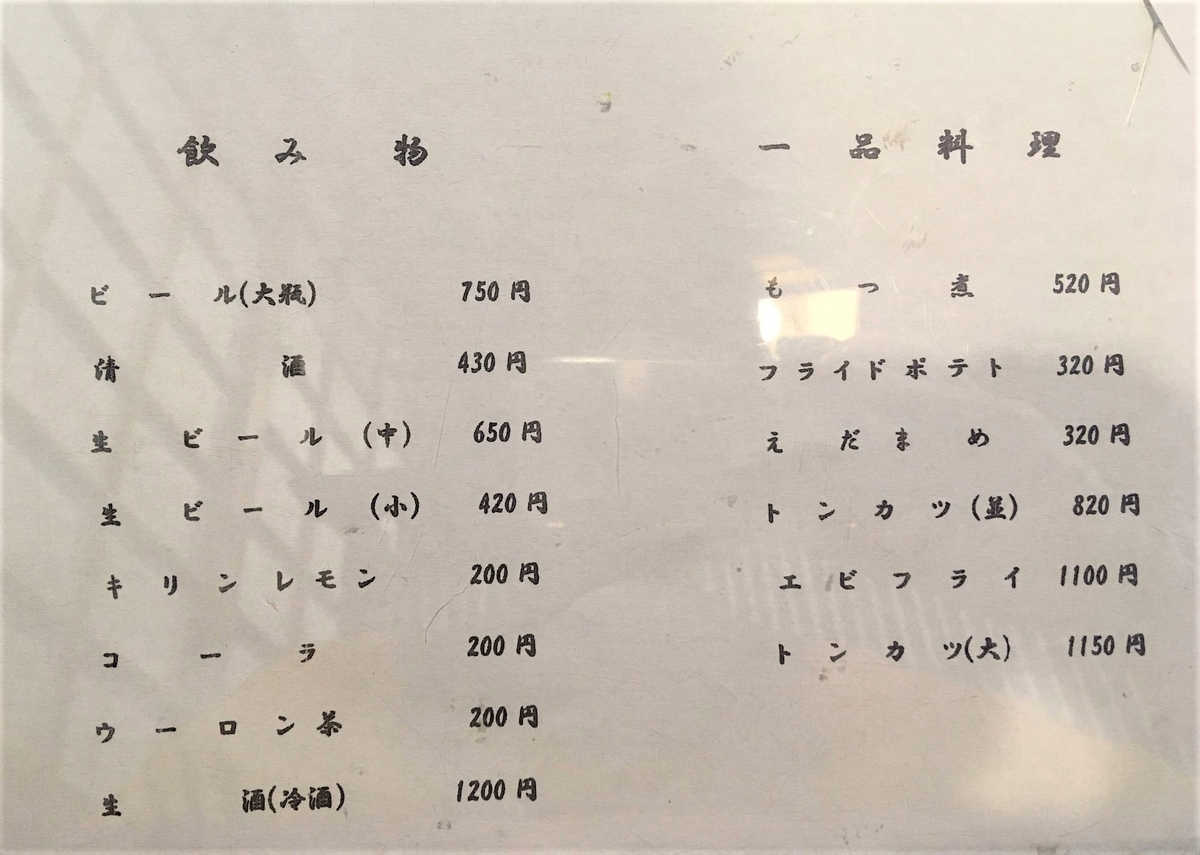 飲み物
ビール(大瓶) 750円
清酒 430円
生ビール(中) 650円
生ビール(小) 420円
キリンレモン 200円
コーラ 200円
ウーロン茶 200円
生酒(冷酒) 1200円
一品料理
もつ煮 520円
フライドポテト 320円
えだまめ 320円
トンカツ(並) 820円
エビフライ 1100円
トンカツ(大) 1150円